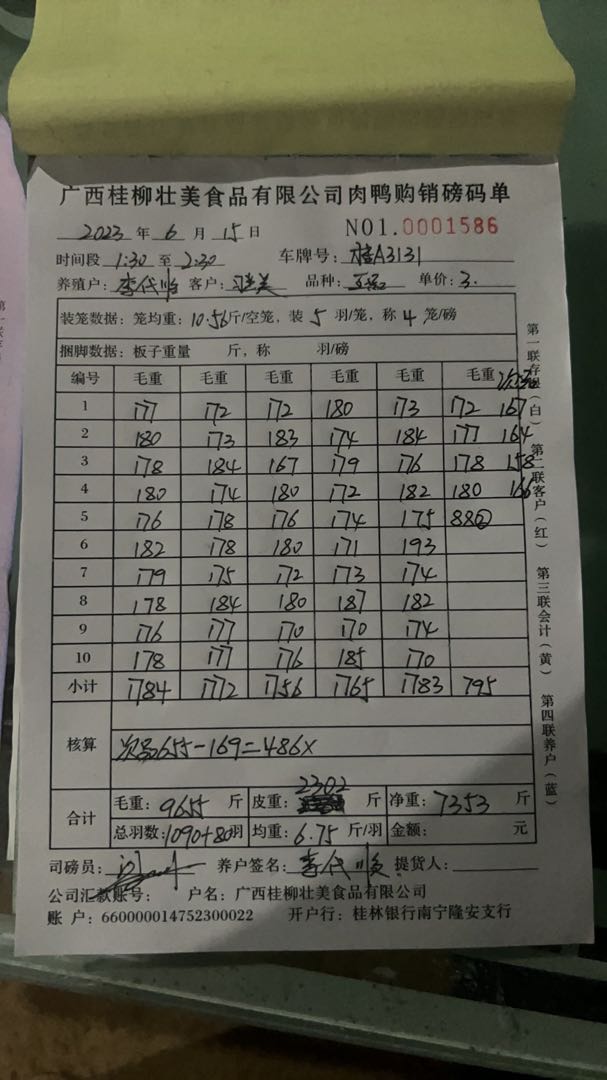 广西桂柳壮美食品有限公司肉鸭购销磅码单
2023 年 6 月 15 日 NO1.0001586
时间段 1:30 至 2:30 车牌号: 桂A3131
养殖户: 李代顺 客户: 美 品种: 单价: 3.
装笼数据: 笼均重: 10.56斤/空笼, 装 5 羽/笼, 称 4 笼/磅
捆脚数据: 板子重量 斤, 称 羽/磅
编号 毛重 毛重 毛重 毛重 毛重 毛重
1 177 172 172 180 173 172 167
2 180 173 183 174 184 177 164
3 178 184 167 179 176 178 158
4 180 174 180 172 182 180 166
5 176 178 176 174 175 88②
6 182 178 180 171 193
7 179 175 172 173 174
8 178 184 180 187 182
9 176 177 170 170 174
10 178 177 176 185 170
小计 1784 1772 1756 1765 1783 795
核算 次品655-169=486X
合计 毛重: 9655 斤 皮重: 2302 斤 净重: 7353 斤
总羽数: 1090+80羽 均重: 6.75 斤/羽 金额: 元
司磅员: 养户签名: 李代顺 提货人:
公司汇款账号: 户名: 广西桂柳壮美食品有限公司
账 户: 660000014752300022 开户行: 桂林银行南宁隆安支行
第一联存根(白) 第二联客户(红) 第三联会计(黄) 第四联养户(蓝)